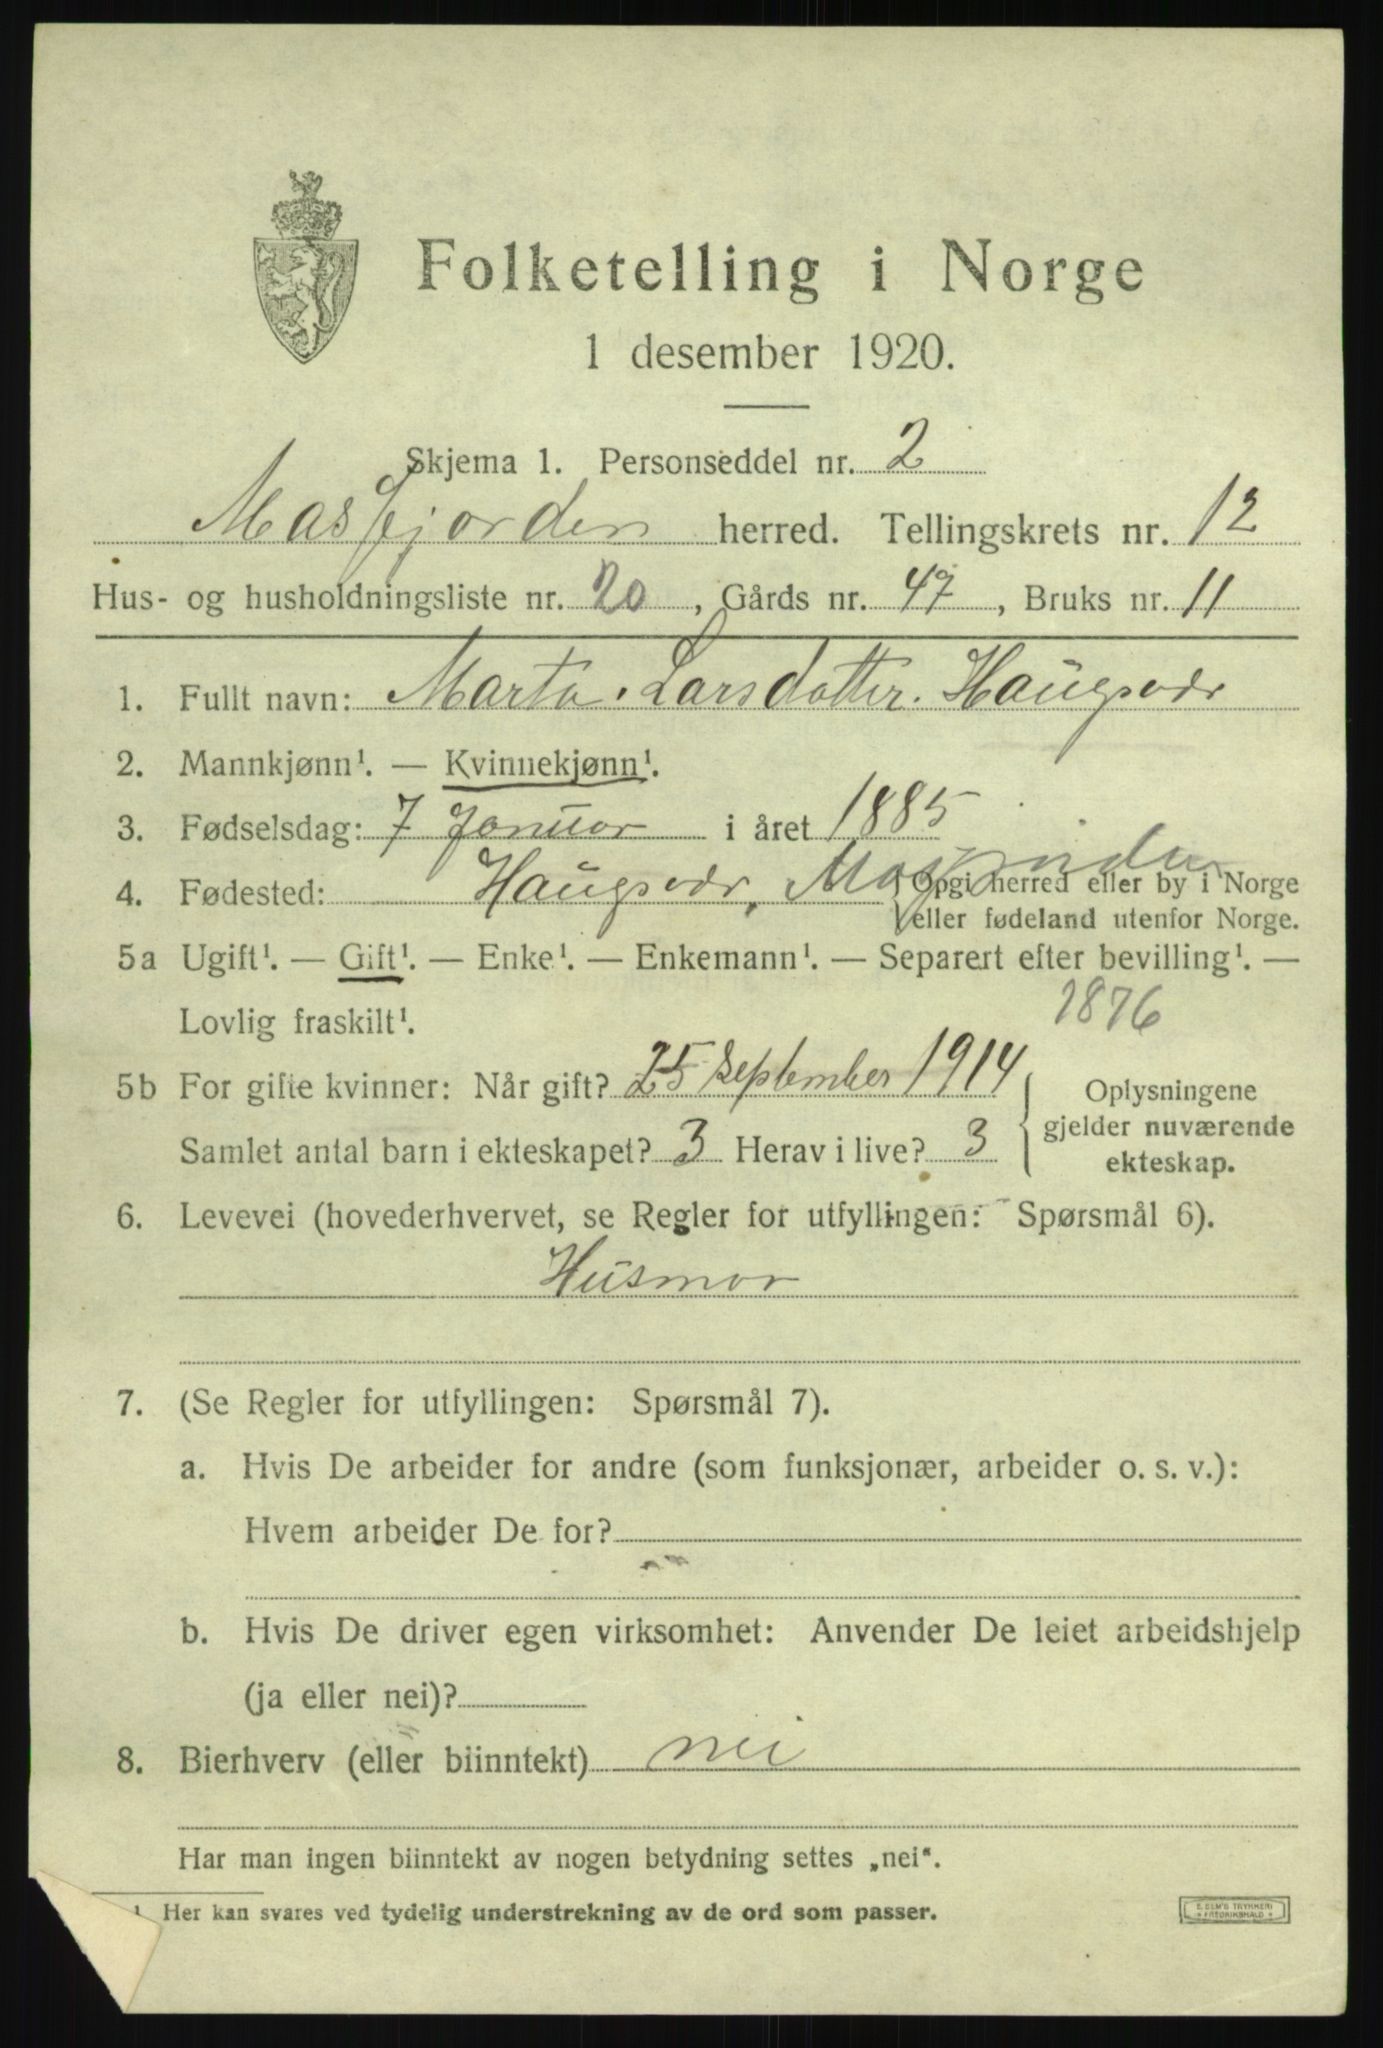 Folketelling i Norge
1 desember 1920.
Skjema 1. Personseddel nr. 2
Masfjorden herred. Tellingskrets nr. 12
Hus- og husholdningsliste nr. 20, Gårds nr. 47, Bruks nr. 11
1. Fullt navn: Marta Larsdatter. Haugsvær
2. Mannkjønn¹. — Kvinnekjønn¹.
3. Fødselsdag: 7 Januar i året 1885
4. Fødested: Haugsvær, Masfjorden {Opgi herred eller by i Norge
eller fødeland utenfor Norge.
5a Ugift¹. — Gift¹. — Enke¹. — Enkemann¹. — Separert efter bevilling¹. —
Lovlig fraskilt¹.
1876
5b For gifte kvinner: Når gift? 25 September 1914
Samlet antal barn i ekteskapet? 3 Herav i live? 3
{ Oplysningene
gjelder nuværende
ekteskap.
6. Levevei (hovederhvervet, se Regler for utfyllingen: Spørsmål 6).
Husmor
7. (Se Regler for utfyllingen: Spørsmål 7).
a. Hvis De arbeider for andre (som funksjonær, arbeider o. s. v.):
Hvem arbeider De for?
b. Hvis De driver egen virksomhet: Anvender De leiet arbeidshjelp
(ja eller nei)?
8. Bierhverv (eller biinntekt) nei
Har man ingen biinntekt av nogen betydning settes „nei“.
¹ Her kan svares ved tydelig understrekning av de ord som passer.
E. SEM'S TRYKKERI
FREDRIKSHALD